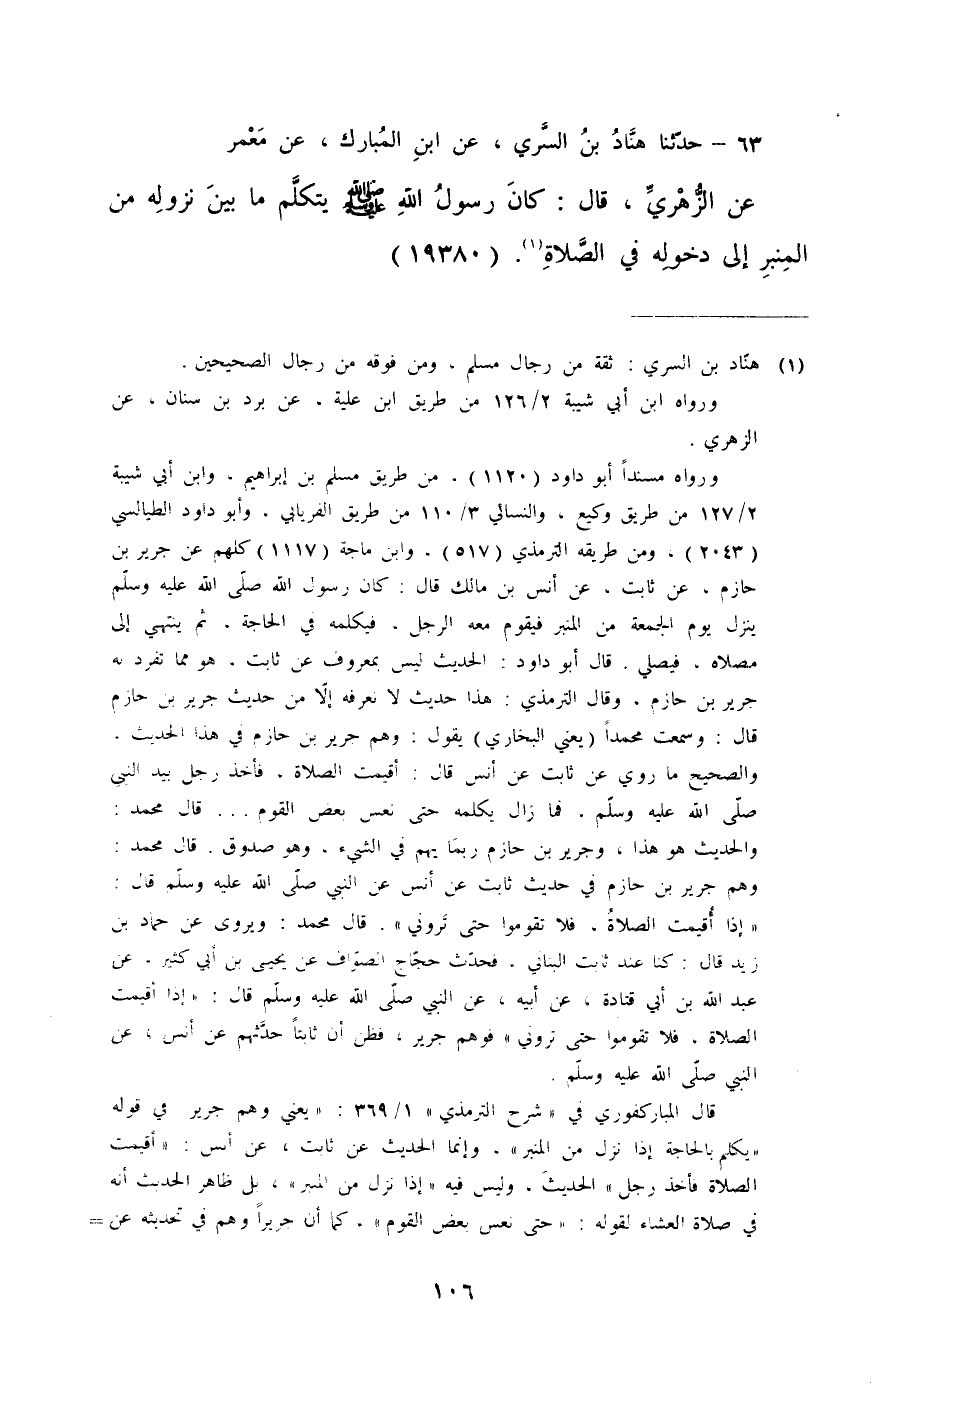 ٦٣ – حدّثنا هنَّادُ بنُ السَّري ، عن ابنِ المُبارك ، عن مَعْمر
عن الزُّهْريِّ ، قال : كانَ رسولُ اللهِ ﷺ يتكلَّم ما بينَ نزولِه من
المِنبرِ إلى دخولِه في الصَّلاةِ(١). (١٩٣٨٠)
(١) هنّاد بن السري : ثقة من رجال مسلم . ومن فوقه من رجال الصحيحين .
ورواه ابن أبي شيبة ١٢٦/٢ من طريق ابن علية . عن برد بن سنان ، عن
الزهري .
ورواه مسنداً أبو داود (١١٢٠) . من طريق مسلم بن إبراهيم . وابن أبي شيبة
١٢٧/٢ من طريق وكيع ، والنسائي ١١٠/٣ من طريق الفريابي . وأبو داود الطيالسي
(٢٠٤٣) ، ومن طريقه الترمذي (٥١٧) . وابن ماجة (١١١٧) كلهم عن جرير بن
حازم . عن ثابت . عن أنس بن مالك قال : كان رسول الله صلّى الله عليه وسلّم
ينزل يوم الجمعة من المنبر فيقوم معه الرجل . فيكلمه في الحاجة . ثم ينتهي إلى
مصلاه . فيصلي . قال أبو داود : الحديث ليس بمعروف عن ثابت . هو مما تفرد به
جرير بن حازم . وقال الترمذي : هذا حديث لا نعرفه إلّا من حديث جرير بن حازم
قال : وسمعت محمداً (يعني البخاري) يقول : وهم جرير بن حازم في هذا الحديث .
والصحيح ما روي عن ثابت عن أنس قال : أقيمت الصلاة . فأخذ رجل بيد النبي
صلّى الله عليه وسلّم . فما زال يكلمه حتى نعس بعض القوم ... قال محمد :
والحديث هو هذا ، وجرير بن حازم ربما يهم في الشيء . وهو صدوق . قال محمد :
وهم جرير بن حازم في حديث ثابت عن أنس عن النبي صلّى الله عليه وسلّم قال :
« إذا أُقيمت الصلاةُ . فلا تقوموا حتى تَروني » . قال محمد : ويروى عن حماد بن
زيد قال : كنا عند ثابت البناني . فحدّث حجّاج الصوّاف عن يحيى بن أبي كثير . عن
عبد الله بن أبي قتادة ، عن أبيه ، عن النبي صلّى الله عليه وسلّم قال : « إذا أقيمت
الصلاة . فلا تقوموا حتى تروني » فوهم جرير ، فظن أن ثابتاً حدَّثهم عن أنس ، عن
النبي صلّى الله عليه وسلّم .
قال المباركفوري في « شرح الترمذي » ٣٦٩/١ : « يعني وهم جرير في قوله
« يكلم بالحاجة إذا نزل من المنبر » . وإنما الحديث عن ثابت ، عن أنس : « أقيمت
الصلاة فأخذ رجل » الحديثَ . وليس فيه « إذا نزل من المنبر » ، بل ظاهر الحديث أنه
في صلاة العشاء لقوله : « حتى نعس بعض القوم » . كما أن جريراً وهم في تحديثه عن =
١٠٦